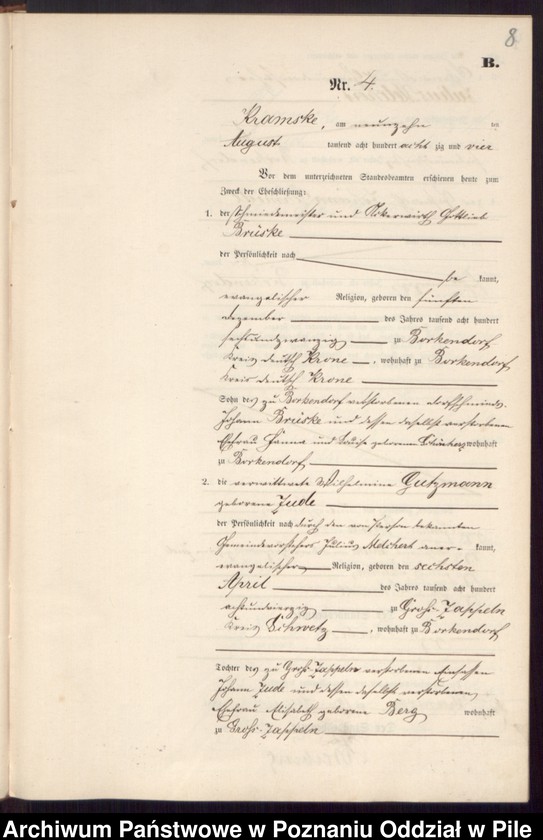 8
B.
Nr. 4.
Kramske, am neunzehn ten
August tausend acht hundert acht zig und vier
Vor dem unterzeichneten Standesbeamten erschienen heute zum
Zweck der Eheschließung:
1. der Schmiedemeister und Ackerwirth Gottlieb
Brüske
der Persönlichkeit nach
be kannt,
evangelischer Religion, geboren den fünften
Dezember des Jahres tausend acht hundert
sechsundzwanzig zu Borkendorf
Kreis deutsch Krone, wohnhaft zu Borkendorf
Kreis deutsch Krone
Sohn des zu Borkendorf verstorbenen Dorfschmieds
Johann Brüske und dessen daselbst verstorbenen
Ehefrau Hanna und Louise geborenen wohnhaft
zu Borkendorf
2. die verwittwete Wilhelmine Gutzmann
geborene Jude
der Persönlichkeit nach durch den von Person bekannten
Gemeindevorsteher Julius Melchert aner- kannt,
evangelischer Religion, geboren den sechsten
April des Jahres tausend acht hundert
achtundvierzig zu Groß-Zappeln
Kreis Schwetz, wohnhaft zu Borkendorf
Tochter des zu Groß-Zappeln verstorbenen Einsassen
Johann Jude und dessen daselbst verstorbenen
Ehefrau Elisabeth geborene Berg wohnhaft
zu Groß-Zappeln
Archiwum Państwowe w Poznaniu Oddział w Pile